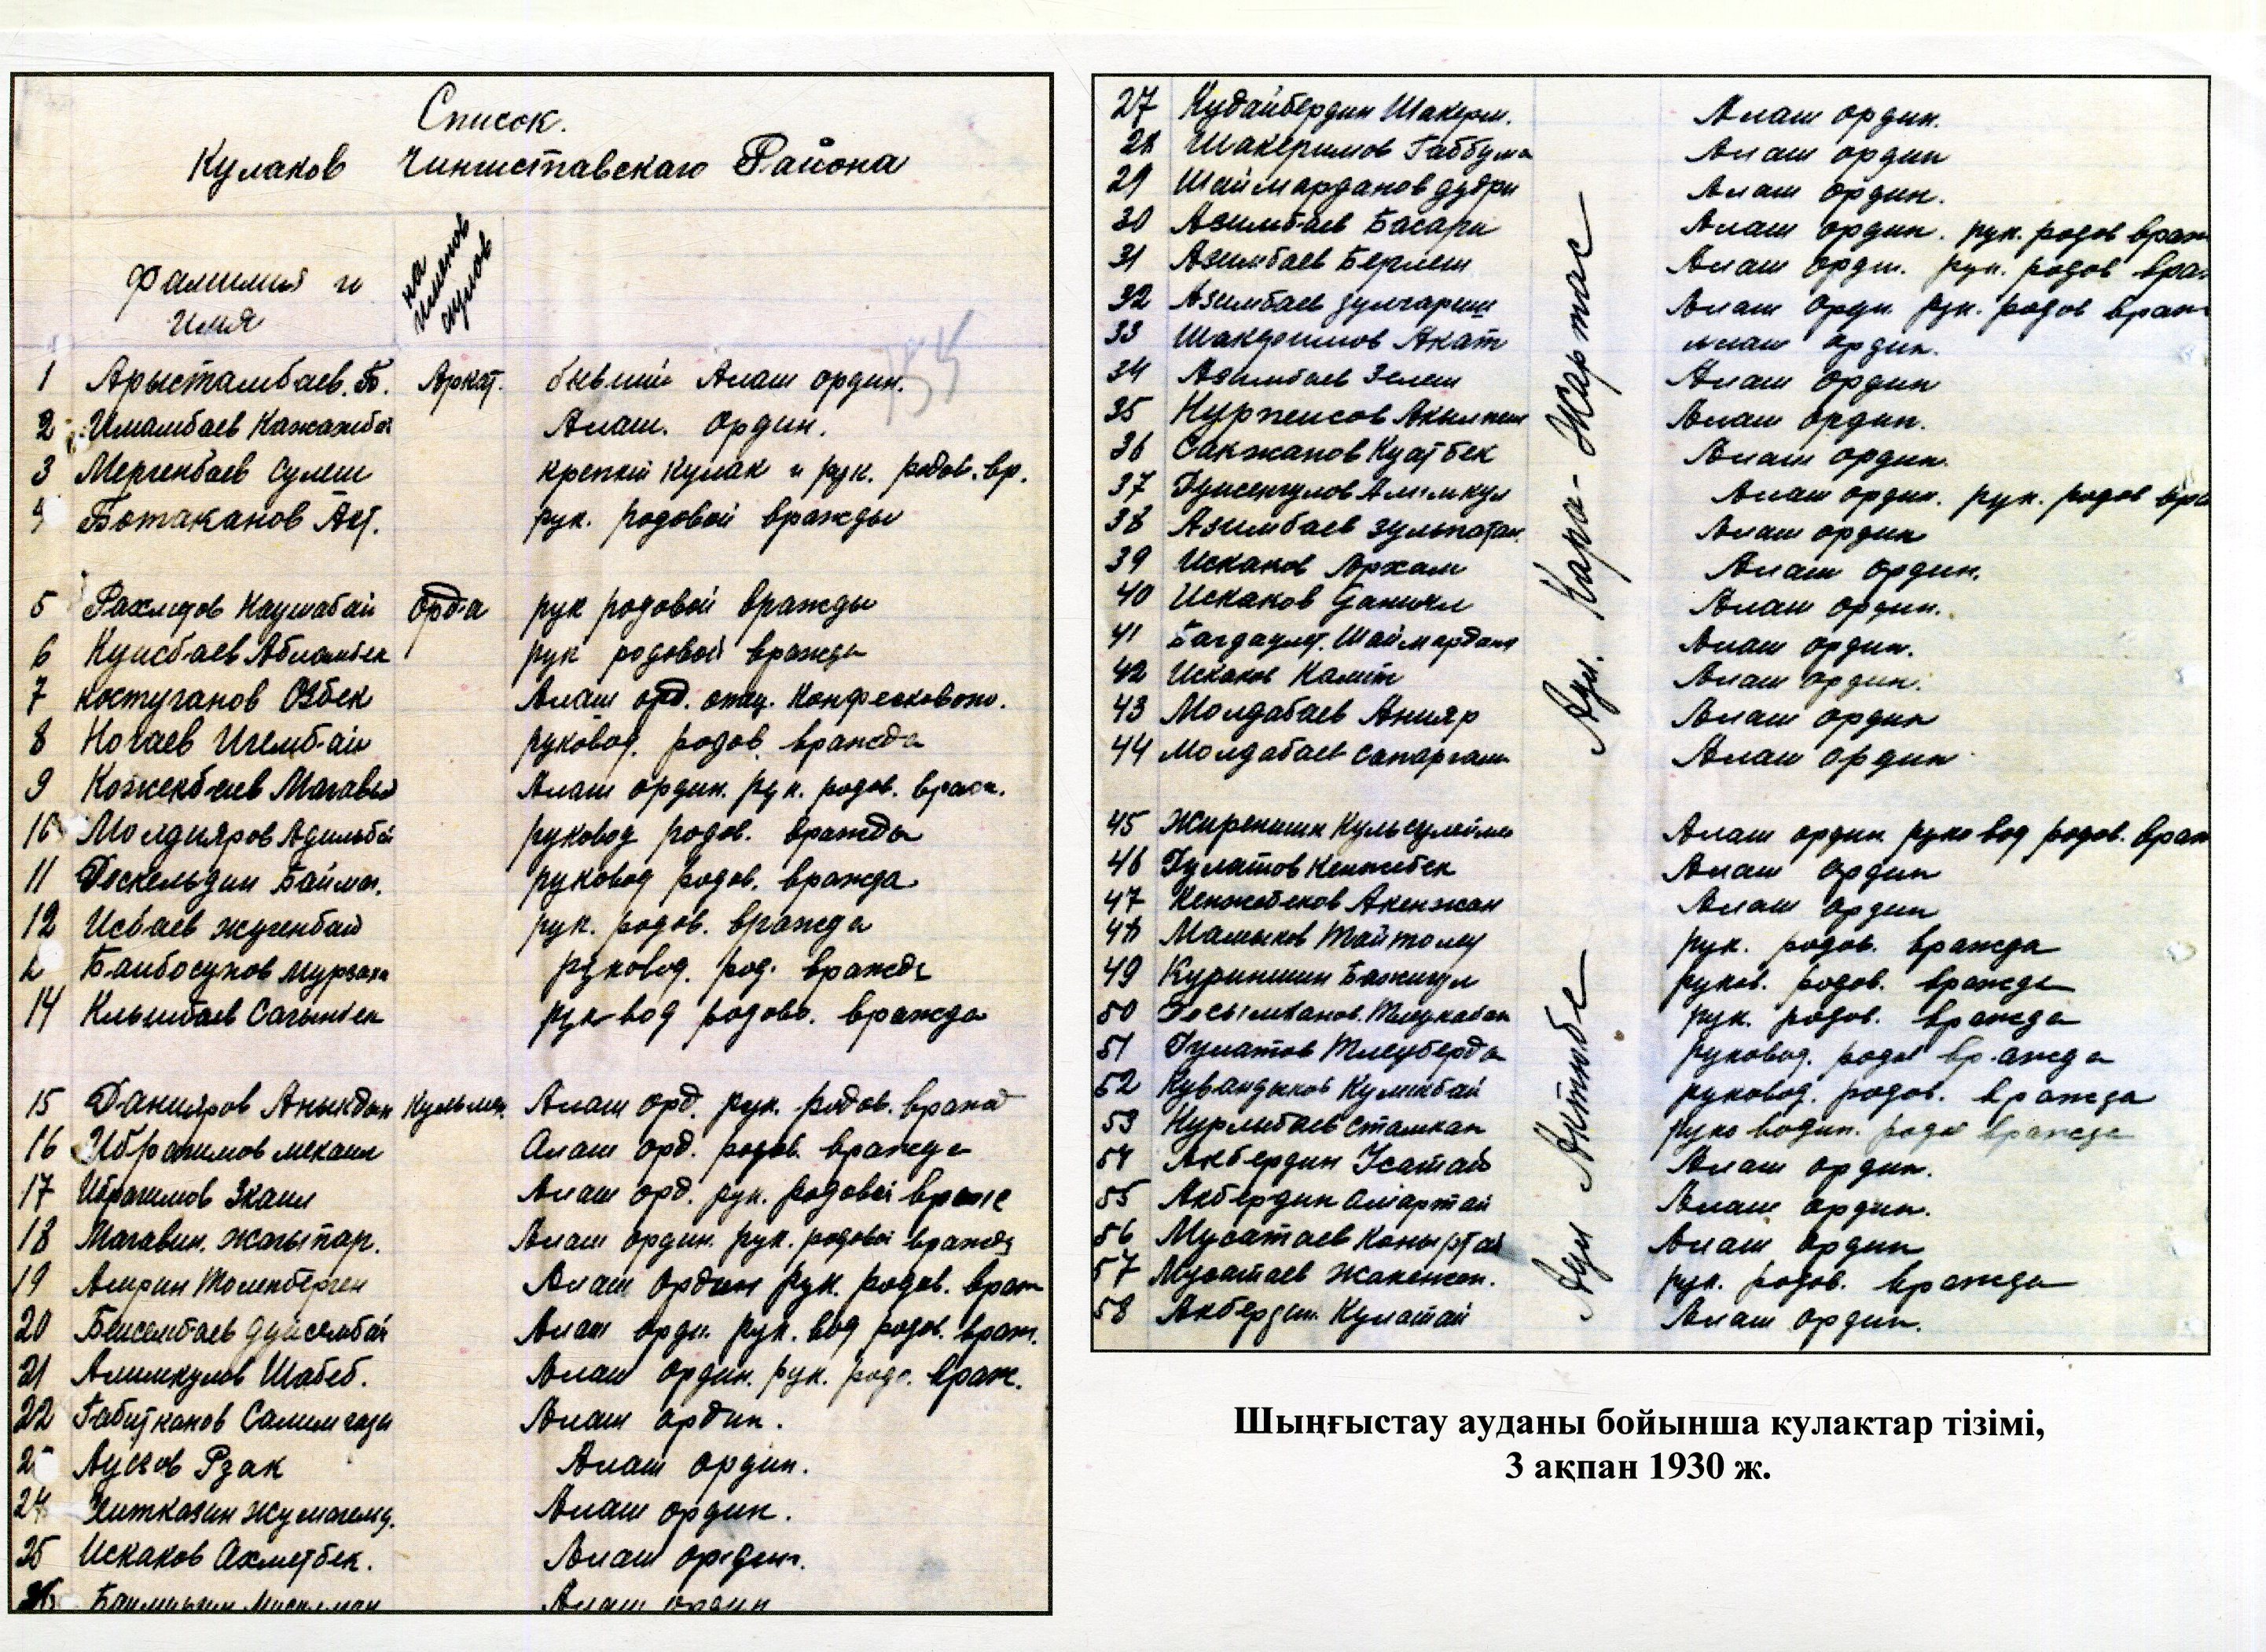 Список.
Кулаков Чингиставскаго Района
Фамилия и имя
на именов аулов
1 Арыстамбаев. Б. Аркат. бывший Алаш ордин.
2 Имамбаев Кажамбай Алаш. Ордин.
3 Мергенбаев Сулеш крепкий кулак и рук. родов. вр.
4 Ботаканов Ает. рук. родовой вражды
5 Рахметов Каумабай Орда рук родовой вражды
6 Куисбаев Абламбек рук родовой вражды
7 Костуганов Озбек Алаш орд. отец. Конфесковоно.
8 Ногаев Игембай руковод. родов. вражда
9 Кожекбаев Магавья Алаш ордин. рук. родов. враж.
10 Молдияров Адильбай руковод родов. вражды
11 Доскельдин Байма. руковод родов. вражда
12 Исбаев жугенбай рук. родов. вражда
Банбосунов Мурзака руковод. род. вражда
14 Клымбаев Сагынбек руковод родово. вражда
15 Данияров Аныкдан Кульмен. Алаш орд. рук. родов. вражд
16 Ибрагимов Мекаил Алаш орд. родов. вражда
17 Ибрагимов Экаил Алаш орд. рук. родовой враже
18 Магавин. Жагыпар. Алаш ордин. рук. родовой вражда
19 Амрин Толекберген Алаш Ордин рук. родов. враж
20 Бейсембаев Дуйсембай Алаш орди. рук. вод родов. враж.
21 Алимкулов Шабеб. Алаш Ордин. рук. родо. враж.
22 Габитканов Салимгази Алаш ордин.
2 Ауезов Рзак Алаш ордин.
24 Хитказин Жумагелд. Алаш ордин.
25 Искаков Ахметбек. Алаш ордин.
26 Алаш ордин
27 Кудайбердин Шакерим. Алаш ордин.
28 Шакеримов Габбума Алаш ордин
29 Шаймарданов Дудри Алаш ордин.
30 Азимбаев Басари Алаш ордин. рук. родов враж
31 Азимбаев Берлеш Алаш орди. рук. родов вра
32 Азимбаев Зулгариш Алаш орди. рук. родов враж
33 Шакдошмов Акат Алаш ордин.
34 Азимбаев Зелеш Алаш ордин
35 Нурпеисов Акылпеш Алаш ордин.
36 Сакжанов Куатбек Алаш ордин.
37 Дуйсенгулов Алимкул Алаш ордин. рук. родов вра
38 Азимбаев Зульпатан. Алаш ордин
39 Искаков Архам Алаш ордин.
40 Искаков Даниял Алаш ордин.
41 Багдаулет. Шаймардана Алаш ордин.
42 Искаков Камит Алаш ордин.
43 Молдабаев Анияр Алаш ордин
44 Молдабаев Сапаргали Алаш ордин
Аул. Кара-Жартас
45 Жиреншин Кульсулейме Алаш ордин руковод родов. враж
46 Дулатов Кенжебек Алаш ордин
47 Кенжебеков Акенжан Алаш ордин
48 Мамыков Таймолеу рук. родов. вражда
49 Куриншин Бажикул руков. родов. вражда
50 Досымжанов. Тлеукабак рук. родов. вражда
51 Дулатов Тлеуберда руковод. родов вражда
52 Кувандыков Куликбай руковод. родов. вражда
53 Нурлыбаев Стамкан руководин. родов вражда
54 Акбердин Усатай Алаш ордин.
55 Акбердин Омартай Алаш ордин.
56 Мусатаев Коныртай Алаш ордин
57 Мусатаев Жакежан. рук. родов. вражда
58 Акбердин. Кулатай Алаш ордин.
Аул Актюбе
Шыңғыстау ауданы бойынша кулактар тізімі,
3 ақпан 1930 ж.